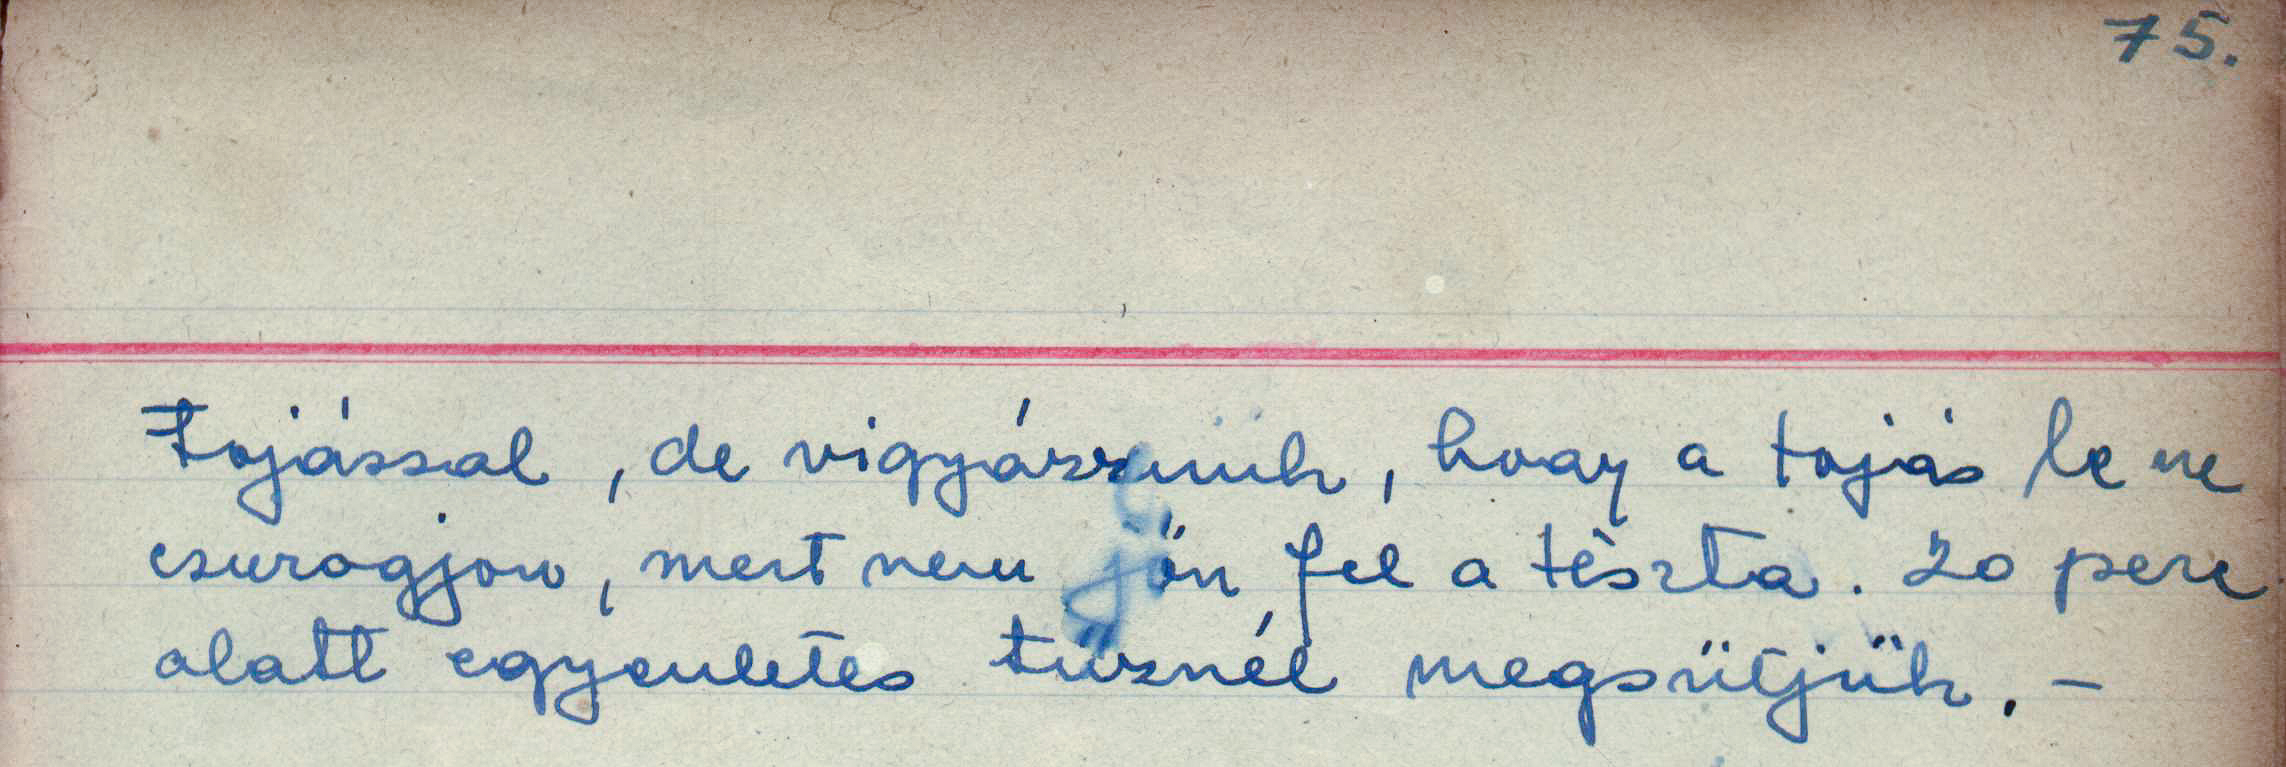 75.
tojással, de vigyázzunk, hogy a tojás le ne
csurogjon, mert nem jön fel a tészta. 20 perc
alatt egyenletes tűznél megsütjük. –